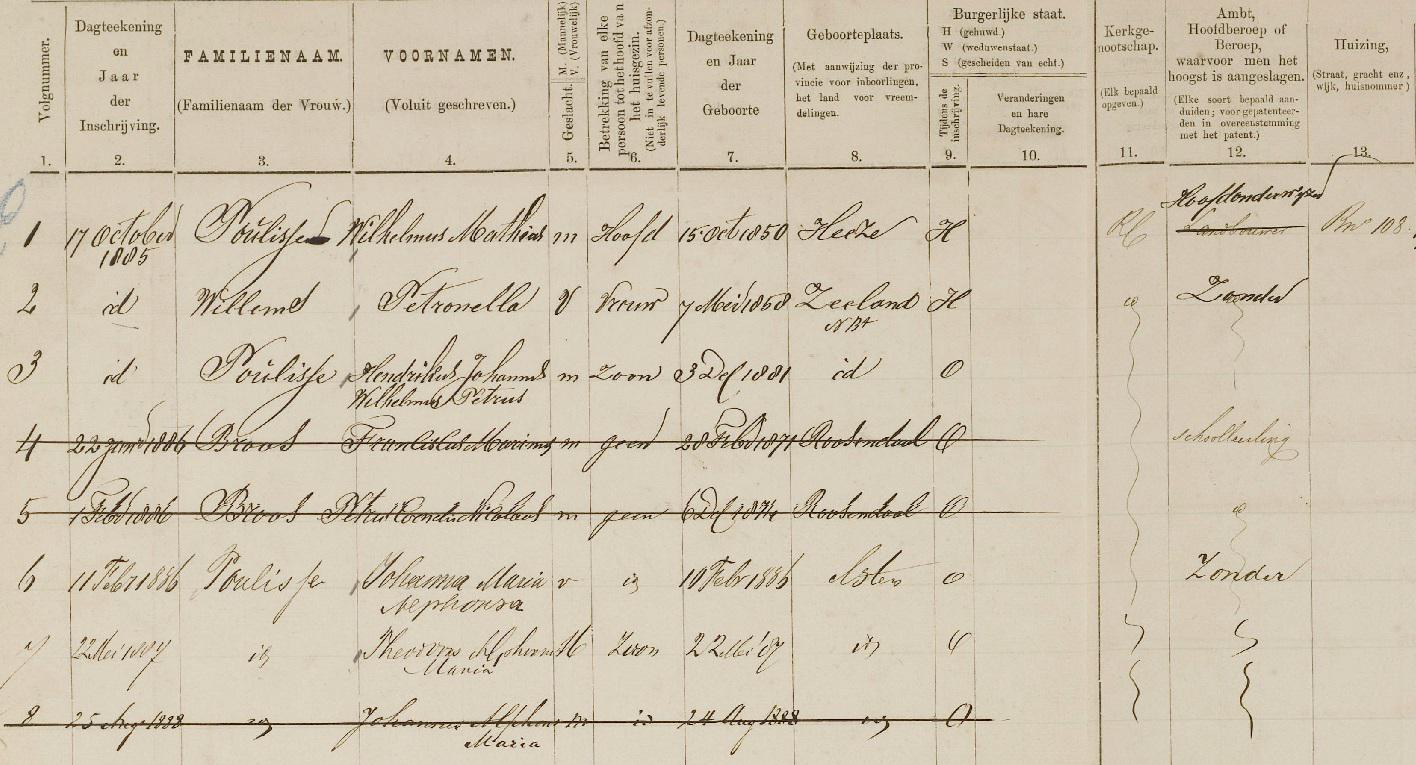 Volgnummer.
Dagteekening en Jaar der Inschrijving.
FAMILIENAAM. (Familienaam der Vrouw.)
VOORNAMEN. (Voluit geschreven.)
Geslacht. M. (Mannelijk) V. (Vrouwelijk)
Betrekking van elke persoon tot het hoofd van het huisgezin. (Niet in te vullen voor afzonderlijk levende personen.)
Dagteekening en Jaar der Geboorte
Geboorteplaats. (Met aanwijzing der provincie voor inboorlingen, het land voor vreemdelingen.
Burgerlijke staat.
H (gehuwd.)
W (weduwenstaat.)
S (gescheiden van echt.)
Tijdens de inschrijving.
Veranderingen en hare Dagteekening.
Kerkgenootschap. (Elk bepaald opgeven.)
Ambt, Hoofdberoep of Beroep, waarvoor men het hoogst is aangeslagen. (Elke soort bepaald aanduiden; voor gepatenteerden in overeenstemming met het patent.)
Huizing, (Straat, gracht enz, wijk, huisnommer)
1. 2. 3. 4. 5. 6. 7. 8. 9. 10. 11. 12. 13.
Hoofdonderwijzer
1 17 October 1885 Poulisse Wilhelmus Mathias m Hoofd 15 Oct 1850 Heeze H RC Landbouwer 108
2 id Willems Petronella V Vrouw 7 Mei 1858 Zeeland NBt H Zonder
3 id Poulisse Hendrikus Johannes Wilhelmus Petrus m Zoon 3 Dec 1881 id O
4 22 1886 Broos Franciscus Marinus m geen 28 Feb 1871 Roosendaal O schoolleerling
5 1 Feb 1886 Broos Petrus Nicolaas m geen 6 Dec 1874 Roosendaal O
6 11 Febr 1886 Poulisse Johanna Maria Alphonsa v id 10 Febr 1886 Asten O Zonder
7 22 Mei 1887 id Theodorus Alphonsus Maria M Zoon 22 Mei 87 id O
8 25 Aug 1888 id Johannes Alphons Maria m id 24 Aug 1888 id O